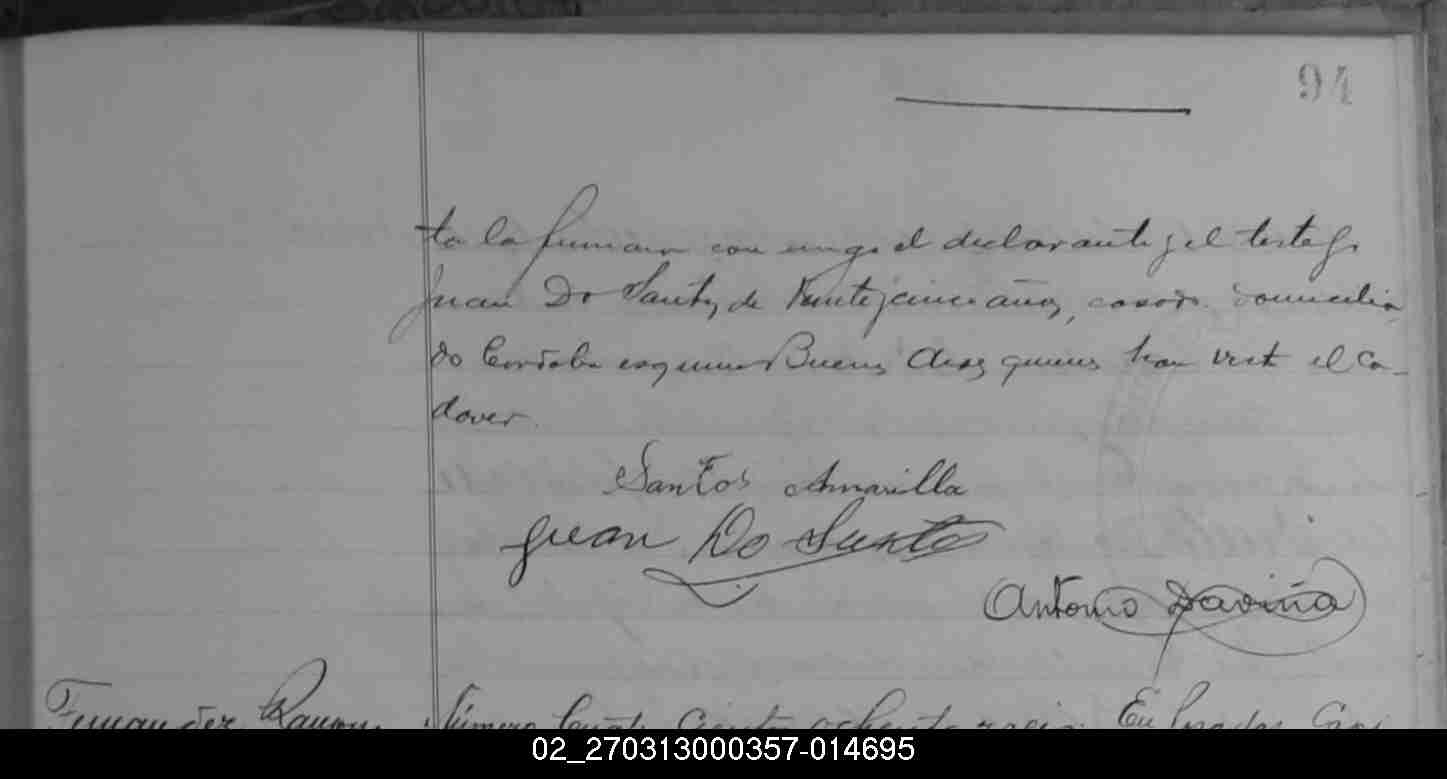 94
ta la firmaron con migo el declarante y el testigo
Juan Do Santos, de veinte y cinco años, casado domicilia
do Cordoba esquina Buenos Aires quienes han visto el ca-
daver.
Santos Amarilla
Juan Do Santo
Antonio Daviña
Fernandez Ramon
Número Cuatro Cientos ochenta En Posadas
02_270313000357-014695